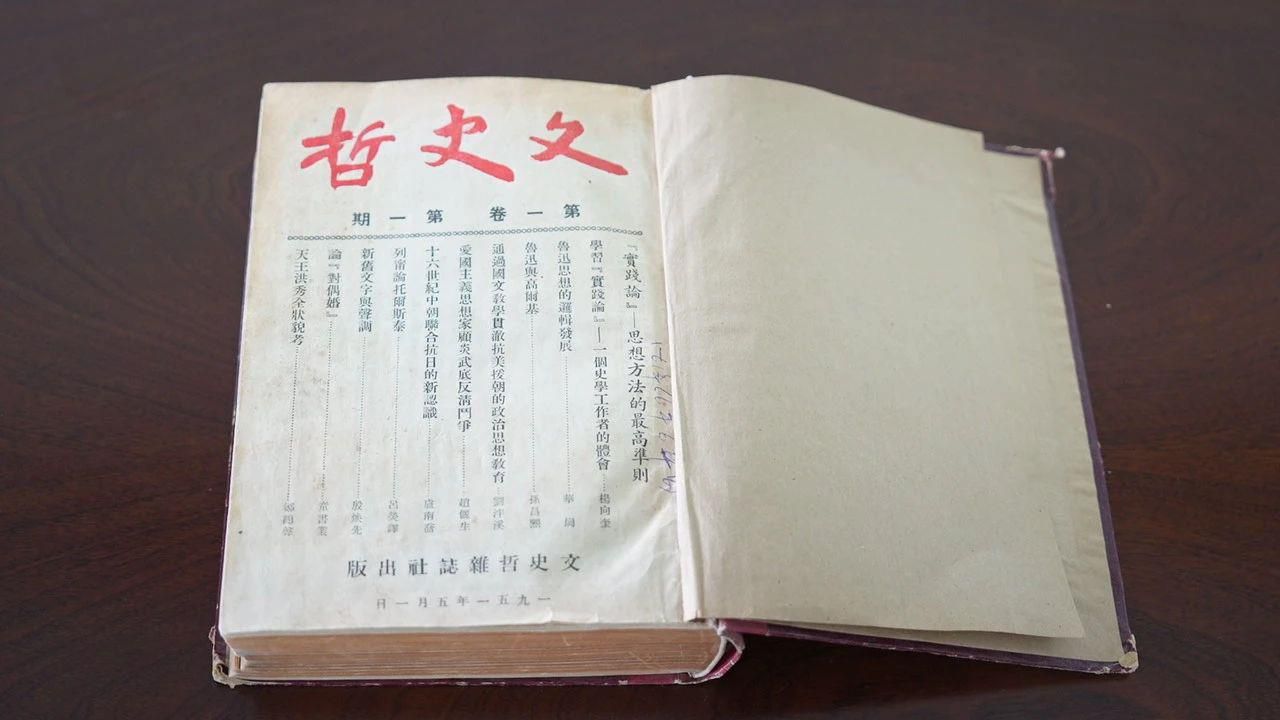 文史哲
第一卷 第一期
『實踐論』——思想方法的最高準則
學習『實踐論』——一個史學工作者的體會……楊向奎
魯迅思想的邏輯發展……華岡
魯迅與高爾基……孫昌熙
通過國文教學貫澈抗美援朝的政治思想教育 劉泮溪
愛國主義思想家顧炎武底反清鬥爭……趙儷生
十六世紀中朝聯合抗日的新認識……盧南喬
列甯論托爾斯泰……呂熒譯
新舊文字與聲調……殷煥先
論『對偶婚』……童書業
天王洪秀全狀貌考……
文史哲雜誌社出版
一九五一年五月一日